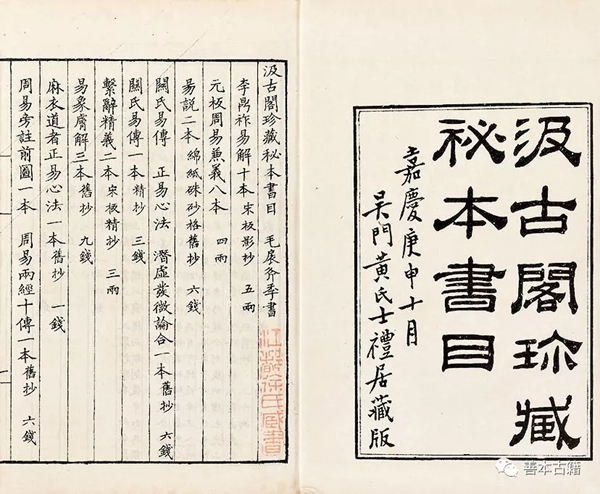 汲古閣珍藏
祕本書目
嘉慶庚申十月
吴門黃氏士禮居藏版
汲古閣珍藏秘本書目 毛扆斧季書
李鼎祚易解十本 宋板影抄 五兩
元板周易兼義八本 四兩
易説二本 綿紙硃砂格舊抄 六錢
關氏易傳 正易心法 潛虛發微論合一本舊抄 六錢
關氏易傳一本精抄 三錢
繫辭精義二本 宋板精抄 三兩
易象膚解三本舊抄 九錢
麻衣道者正易心法一本舊抄 一錢
周易旁註前圖一本 周易兩經十傳一本舊抄 六錢
江都徐氏臧書
善本古籍